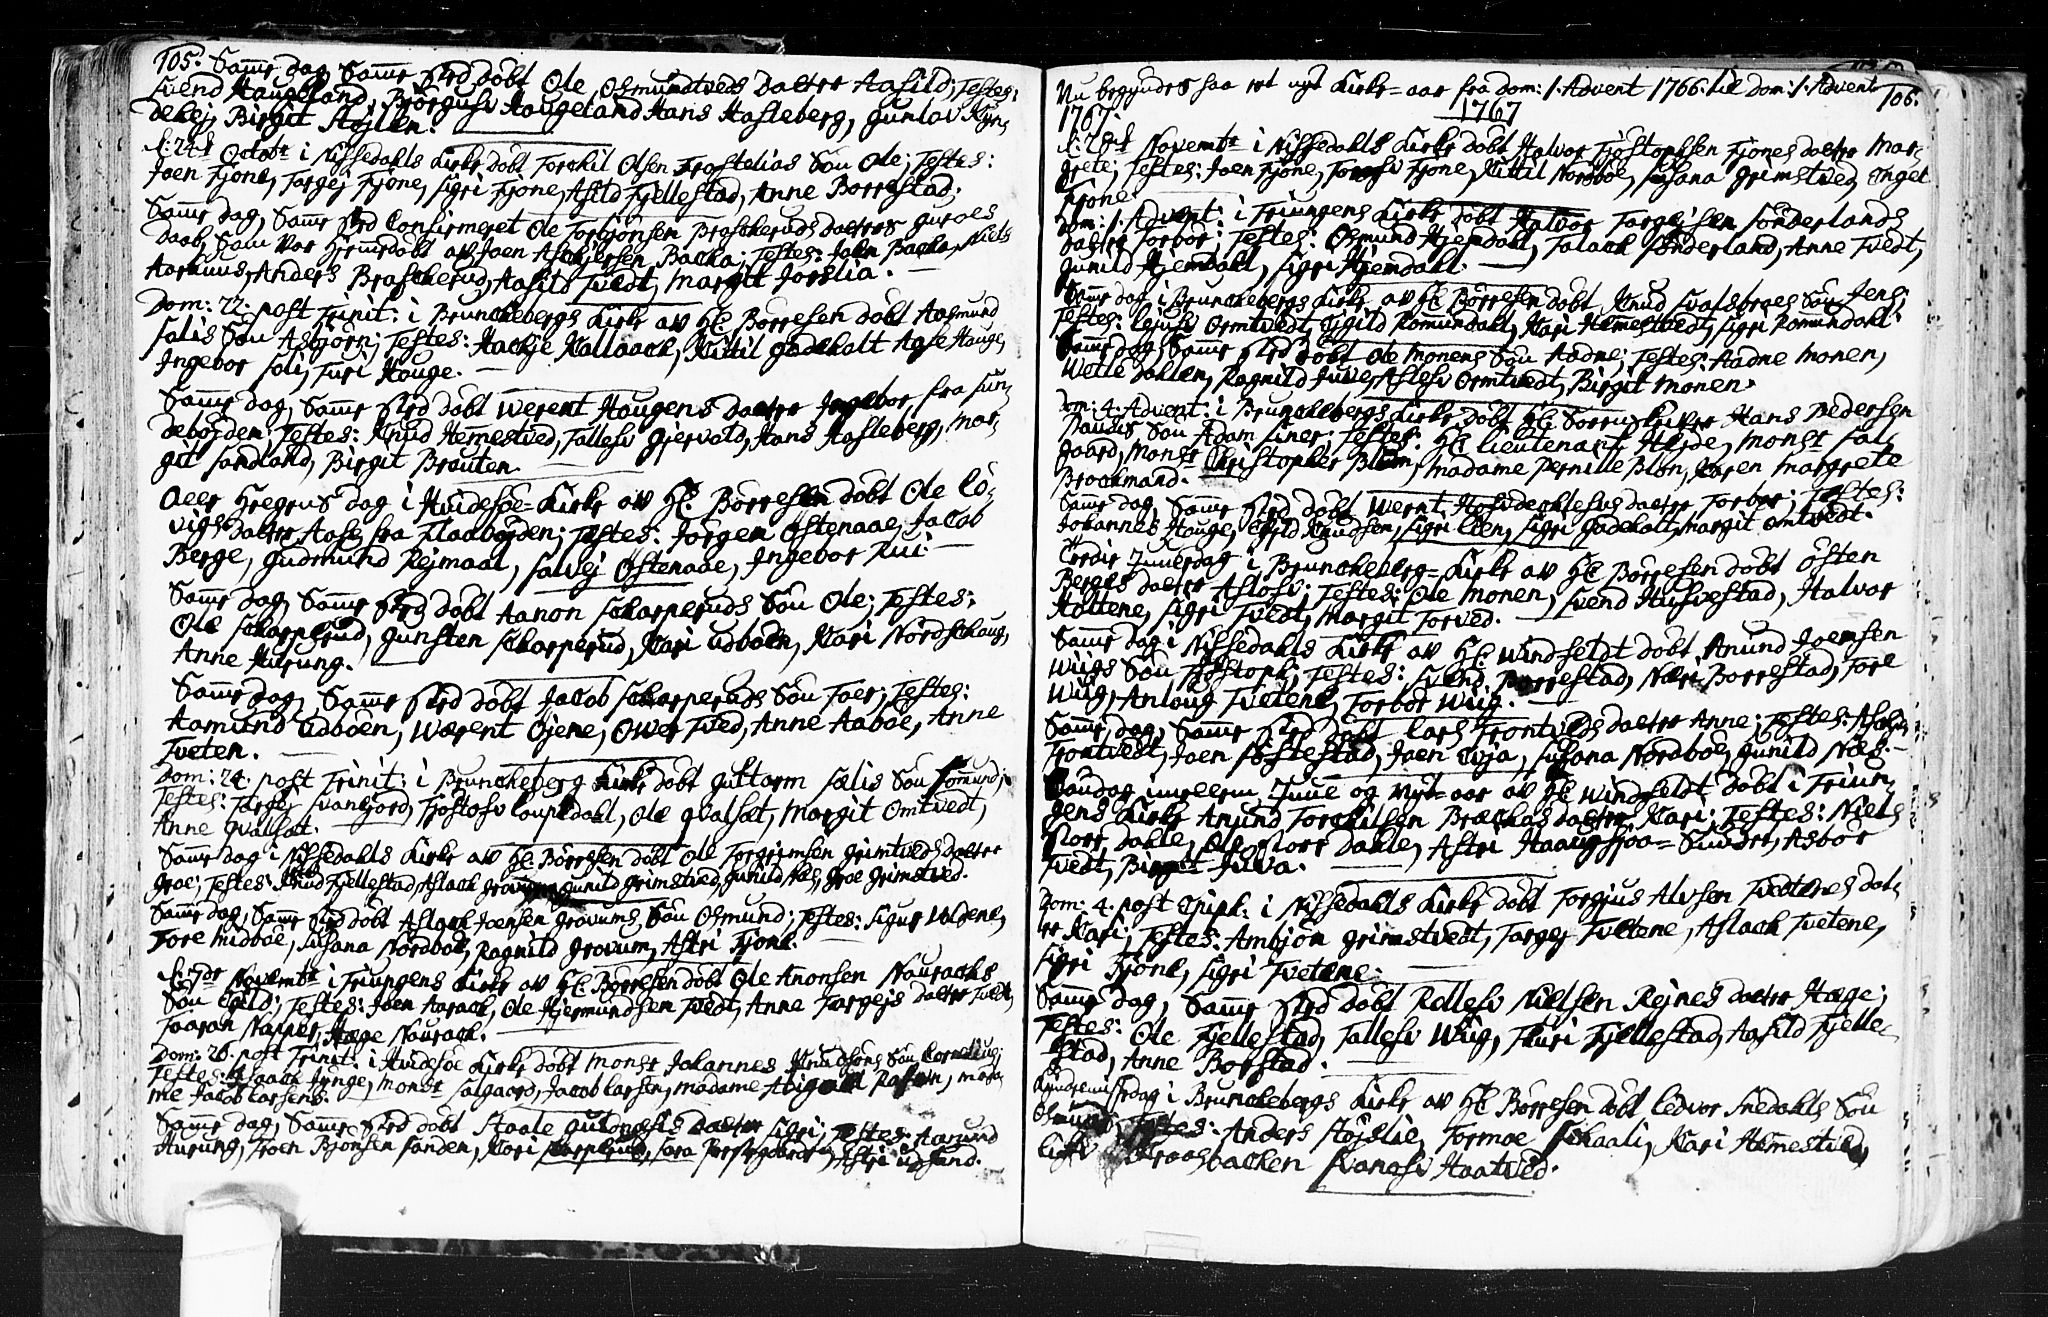 105. Samme dag, Samme sted döbt Ole Osmundtveds daatter Aasild; Testes:
Svend Haugeland, Björgulf Haugeland Hans Hasleberg, Gunlov Kyn-
dekej, Birgit Stöjlen.
d: 24de Octobr i Nissedahls Kirke döbt Torckil Olsen Frostelias Sön Ole; Testes:
Joen Fjone, Torgej Fjone, Sigri Fjone, Asild Fjellestad, Anne Borrestad.
Samme dag, Samme sted Confirmeret Ole Torbjönsen Braskeruds daatters Guroes
daab, Som var hjemedöbt af Joen Asbjörsen Backa; Testes: Joen Backa, Niels
Aarhuus, Anders Braskerud, Aasild Tvedt, Margit Joeslia.
Dom: 22. post Trinit: i Brunckebergs Kirke av Hr. Börresen döbt Aasmund
Solis Sön Asbjörn; Testes: Hackje Kallaack, Kittil Gadehalt Aase Hauge,
Ingebor Soli, Turi Hauge.
Samme dag, Samme sted döbt Werent Haugens daatter Ingebor fra Sun-
debojden; Testes: Knud Hemestved, Tallefs Gjervold, Hans Hasleberg, Mar-
git Sandland, Birgit Brauten.
Aller Helgens dag i Hvidesöe-Kirke av Hr. Börresen döbt Ole Lö-
vigs daatter Aase, fra Flaabojden; Testes: Jörgen Ostenaae, Jacob
Berge, Gudmund Rejmaal, Salvej Ostenaae, Ingebor Rui.
Samme dag, Samme sted döbt Aanon Skarperuds Sön Ole; Testes:
Ole Skarperud, Gunsten Skarperud, Kari Udboen, Kari Nordskaug,
Anne Hurung.
Samme dag, Samme sted döbt Jacob Skarperuds Sön Toer; Testes:
Aamund Udboen, Wærent Ojene, Ower Tved, Anne Aaboe, Anne
Tveten.
Dom: 24. post Trinit: i Brunckeberg Kirke döbt Guttorm Sælis Sön Romund;
Testes: Torgej Svanejord, Tjostolv Loupedahl, Ole Qvalsæt, Margit Omtvedt,
Anne Qvalsæt.
Samme dag i Nissedahls Kirke av Hr. Börresen döbt Ole Torgrimsen Grimtveds daatter
Groe; Testes: Knud Fjellestad, Aslack Grovum, Gunild Grimstved, Gunild Næs, Groe Grimstved.
Samme dag, Samme sted döbt Aslack Joensen Grovums Sön Osmund; Testes: Sigur Valdene,
Tore Midboe, Susana Nordboe, Ragnild Grovum, Astri Fjone.
d: 7de Novembr i Triungens Kirke av Hr. Börresen döbt Ole Anonsen Nauracks
Sön Egild; Testes: Joen Aarack, Ole Hjermundsen Tvedt, Anne Torgejs daatter Tvedt,
Taaran Napper, Hæge Naurack.
Dom: 26. post Trinit: i Hvidesöe Kirke döbt Monsr Johannes Knudsöns Sön Cornelius;
Testes: Isaach Junge, Monsr Salgaard, Jacob Larsen, Madame Abigael Rasen, mada-
me Jacob Larsens.
Samme dag, Samme sted döbt Staale Gulongsis daatter Sigri; Testes: Aamund
Hurung, Troen Bjönsen Sanden, Kari Skarperud, Sara Astri Udsund.
Nu begyndes saa ret nyt Kirke-aar fra dom: 1. Advent 1766. til Dom: 1. Advent 106.
1767. 1767
d: 28de Novembr i Nissedahls Kirke döbt Halvor Tjostophsen Fjones daatter Mar-
grete; Testes: Joen Fjone, Torgusv Fjone, Kittil Nordboe, Susana Grimstved, Engel
Fjone.
Dom: 1. Advent: i Triungens Kirke döbt Halvor Torgejsen Sönderlands
daatter Torbor; Testes: Osmund Hjemdahl, Talack Sönderland, Anne Tvedt,
Gunild Hjemdahl, Sigri Hjemdahl.
Samme dag i Brunckebergs Kirke av Hr. Börresen döbt Knud Svalsbroes Sön Jens;
Testes: Lejulv Ormtvedt, Eigild Romundahl, Kari Hemestvedt, Sigri Romundahl.
Samme dag, Samme sted döbt Ole Monens Sön Aadne; Testes: Aadne Monen,
Wetle Dahlen, Ragnild Juve, Aslefv Ormtvedt, Birgit Monen.
Dom: 4. Advent: i Brunckebergs Kirke döbt Hr. Sorrnskriver Hans Pedersen
Paudis Sön Adam Finer; Testes: Hr. Lieutenant Hejde, Monsr Sal-
gaard, Monsr Christopher Blom, Madame Pernille Blom, Karen Margrete
Brockmand.
Samme dag, Samme sted döbt Wernt daatter Torbor; Testes:
Johannes Hauge, Egild Knudsen, Sigri Lien, Sigri Gadehalt, Margit Omtvedt.
Tredie Juuledag i Brunckeberg-Kirke av Hr. Börresen döbt Östen
Berges daatter Aslosv; Testes: Ole Monen, Svend Husvestad, Halvor
Holtene, Sigri Tvedt, Margit Torved.
Samme dag i Nissedahls Kirke av Hr. Windfeldt döbt Anund Joemsen
Wiigs Sön Tjostoph; Testes: Svend Borrestad, Næri Borrestad, Tore
Wiig, Anloug Tvetene, Torbor Wiig.
Samme dag, Samme sted döbt Lars Trontveds daatter Anne; Testes:
Trontvedt, Joen Föstestad, Joen Twja, Susana Nordboe, Gunild Næs.
Söndag imellem Juul og Nyt-aar av Hr. Windfeldt döbt i Triun-
gens Kirke Anund Torckilsen Bræckas daatter Kari; Testes: Niels
Storr dahle, Ole Storr dahle, Astri Haaugsjaa-Sundet, Asbor
Tvedt, Birgit Juva.
Dom: 4. post Epiph: i Nissedahls Kirke döbt Torgjus Alvsen Tvetenes dat-
ter Kari; Testes: Ambjön Grimstvedt, Torgej Tvetene, Aslack Tvetene,
Sigri Fjone, Sigri Tvetene.
Samme dag, Samme sted döbt Rollefv Nielsen Rejnes daatter Hæge;
Testes: Ole Fjellestad, Tallefv Wiig, Thuri Fjellestad, Aasild Fjelle-
stad, Anne Borstad.
Kyndelmissedag i Brunckebergs Kirke av Hr. Börresen döbt Ledvor Snedahls Sön
Osmund; Testes: Anders Stöjslie, Tormoe Skaali, Kari Hemestved,
backen Svanaug Haatved.